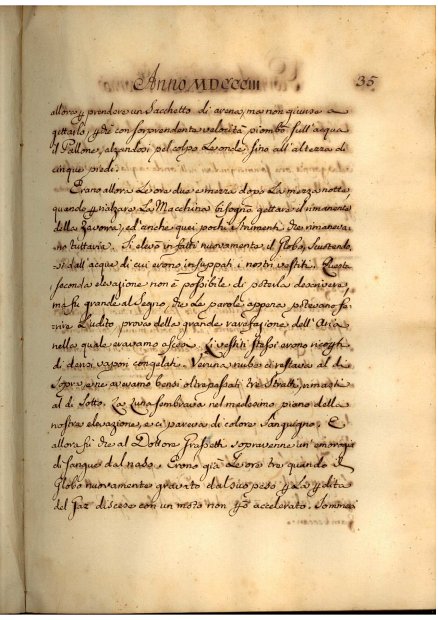 Anno MDCCCIII
35
allora p prendere un Sacchetto di arena, ma non giunse a
gittarlo, che con sorprendente velocità piombò sull'acqua
il Pallone, alzandosi pel colpo Le onde fino all'altezza di
cinque piedi.
Erano allora Le ore due e mezza dopo La mezza notte
quando p rialzare La Macchina bisognò gettare il rimanente
della Zavorra, ed anche quei pochi istrumenti che rimaneva-
no tuttavia. Si elevò in fatti nuovamente il Globo, scuotendo-
si dall'acque di cui erano insuppati i nostri vestiti. Questa
seconda elevazione non è possibile di poterla descrivere,
ma fu grande al Segno, che La parola appena potevano fe-
rire L'udito, prova della grande rarefazione dell'Aria
nella quale eravamo ascesi. Li vestiti stessi erano ricoperti
di densi vapori congelati. Veruna nube ci restava al di
sopra, e ne avevamo bensì oltrepassati tre Strati, rimasti
al di Sotto. La Luna sembrava nel medesimo piano della
nostra elevazione, e ci pareva di colore Sanguigno. E
allora fu che al Dottore Grassetti sopravenne un'emoragia
di sangue dal naso. Erano già Le ore tre quando il
Globo nuovamente gravato dal suo peso p La perdita
del Gaz discese con un moto non però accelerato.